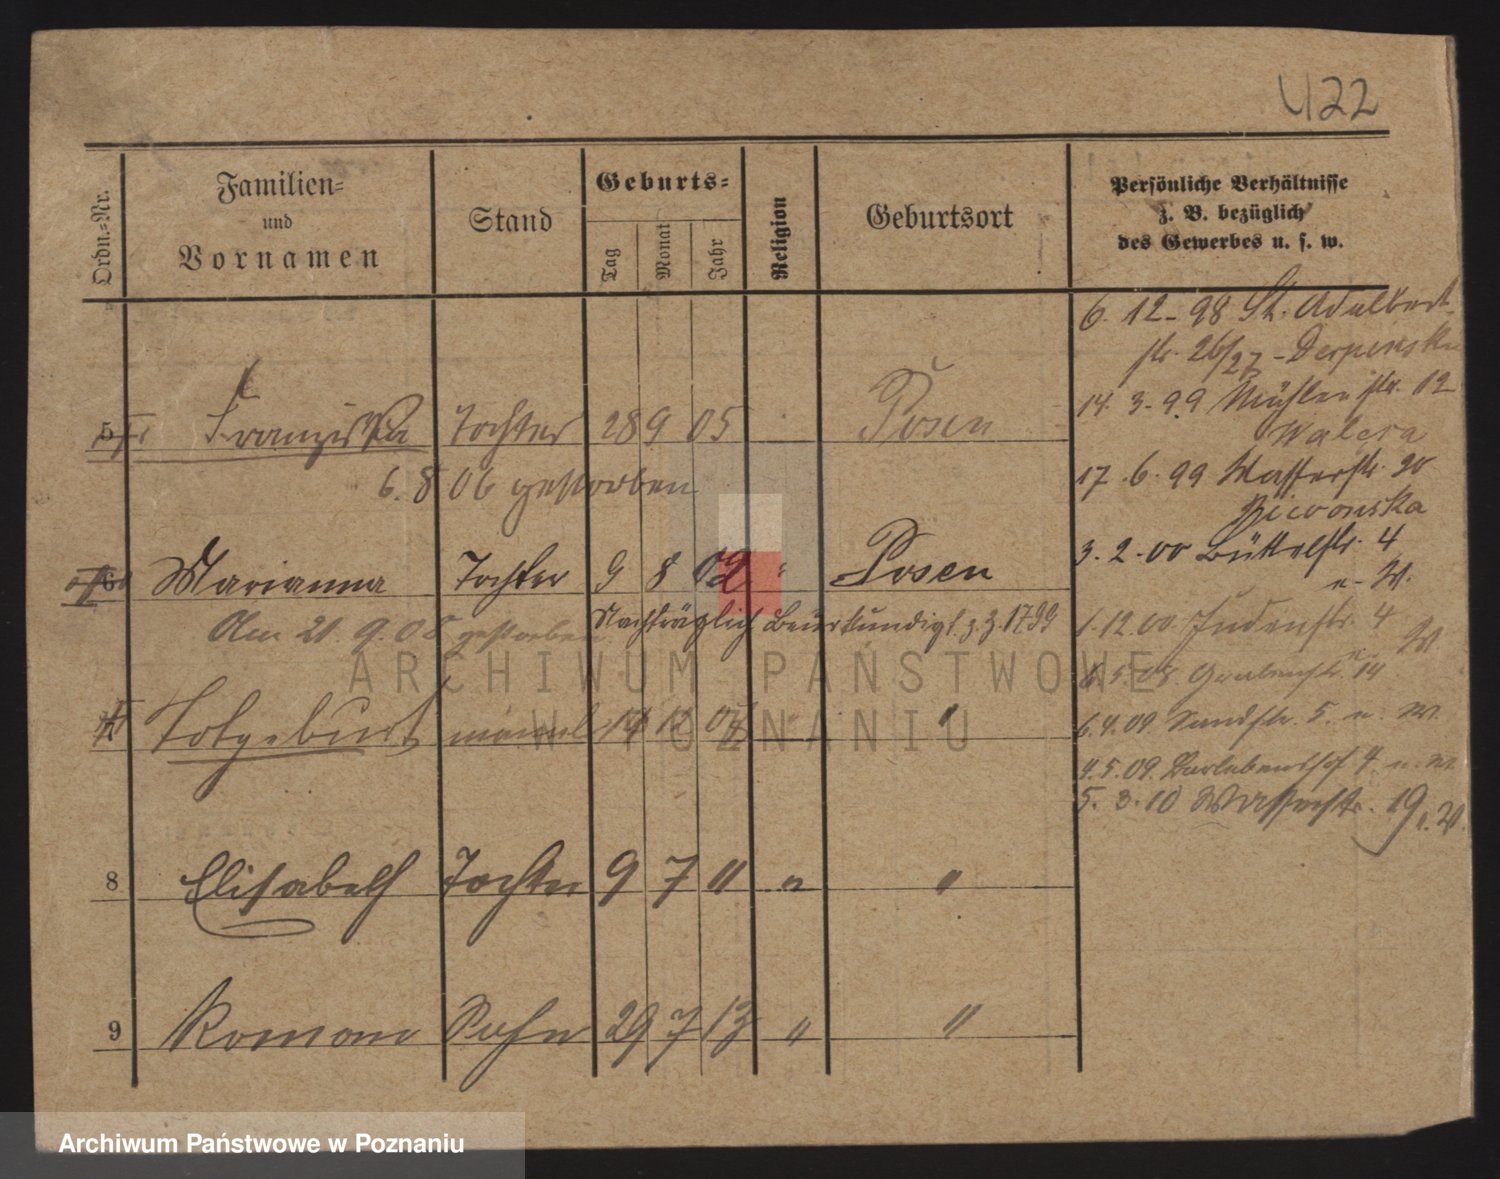 422
Ordn.=Nr.
Familien=
und
Vornamen
Stand
Geburts=
Tag
Monat
Jahr
Religion
Geburtsort
Persönliche Verhältnisse
z. B. bezüglich
des Gewerbes u. s. w.
5 Franziska Tochter 28 9 05 Posen
6. 8 06 gestorben
6 Marianna Tochter 9 8 02 " Posen
Am 21. 9. 08 gestorben Nachträglich Beurkundigt
Totgeburt männl 14 12 07 "
8 Elisabeth Tochter 9 7 11 " "
9 Romano Sohn 29 7 13 " "
6. 12 - 98 St. Adalbert
str. 26/27 - Derpinska
14. 3 - 99 Mühlenstr. 12
Walera
17. 6. 99 Wasserstr. 20
3. 2 - 00 Büttelstr. 4
n. W.
1. 12. 00. Judenstr. 4
n. W.
8. 5. 08. Grabenstr. 14
6. 4. 09. Sandstr. 5. n. W.
4. 5. 09. 4 n. W.
5. 3. 10 Wasserstr. 19 n. W.
ARCHIWUM PAŃSTWOWE
W POZNANIU
Archiwum Państwowe w Poznaniu